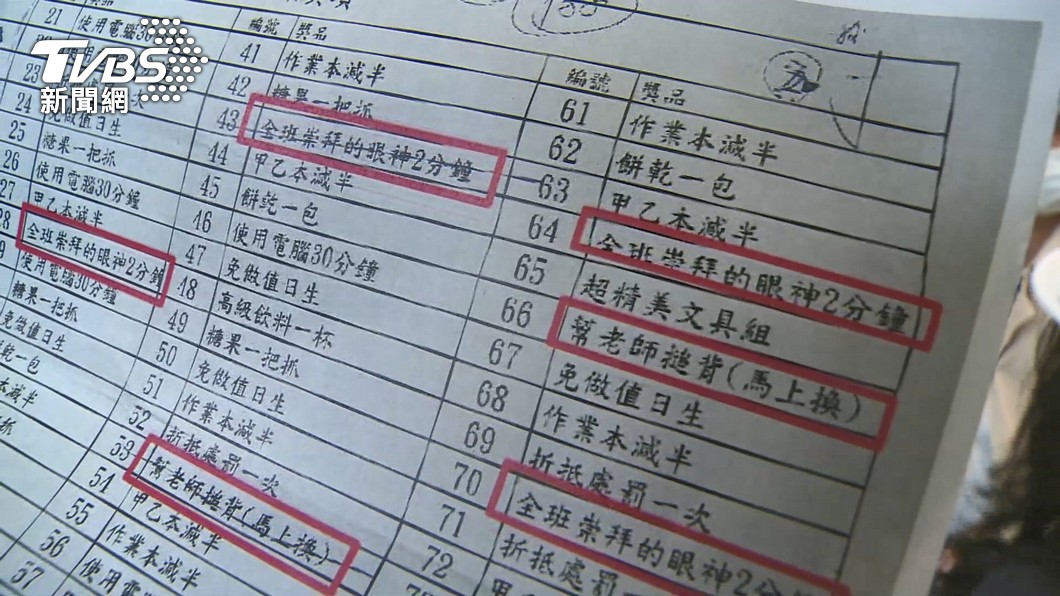 TVBS
新聞網
21 使用電腦30
23
24 免做值日生
25 糖果一把抓
26 使用電腦30分鐘
27 甲乙本減半
28 全班崇拜的眼神2分鐘
使用電腦30分鐘
糖果一把抓
免做值日生
乾一包
本減半
抓
編號 獎品
41 作業本減半
42 糖果一把抓
43 全班崇拜的眼神2分鐘
44 甲乙本減半
45 餅乾一包
46 使用電腦30分鐘
47 免做值日生
48 高級飲料一杯
49 糖果一把抓
50 免做值日生
51 作業本減半
52 折抵處罰一次
53 幫老師搥背(馬上換)
54 甲乙本減半
55 作業本減半
56 使用電腦
57
編號 獎品
61 作業本減半
62 餅乾一包
63 甲乙本減半
64 全班崇拜的眼神2分鐘
65 超精美文具組
66 幫老師搥背(馬上換)
67 免做值日生
68 作業本減半
69 折抵處罰一次
70 全班崇拜的眼神2分
71 折抵處罰
72